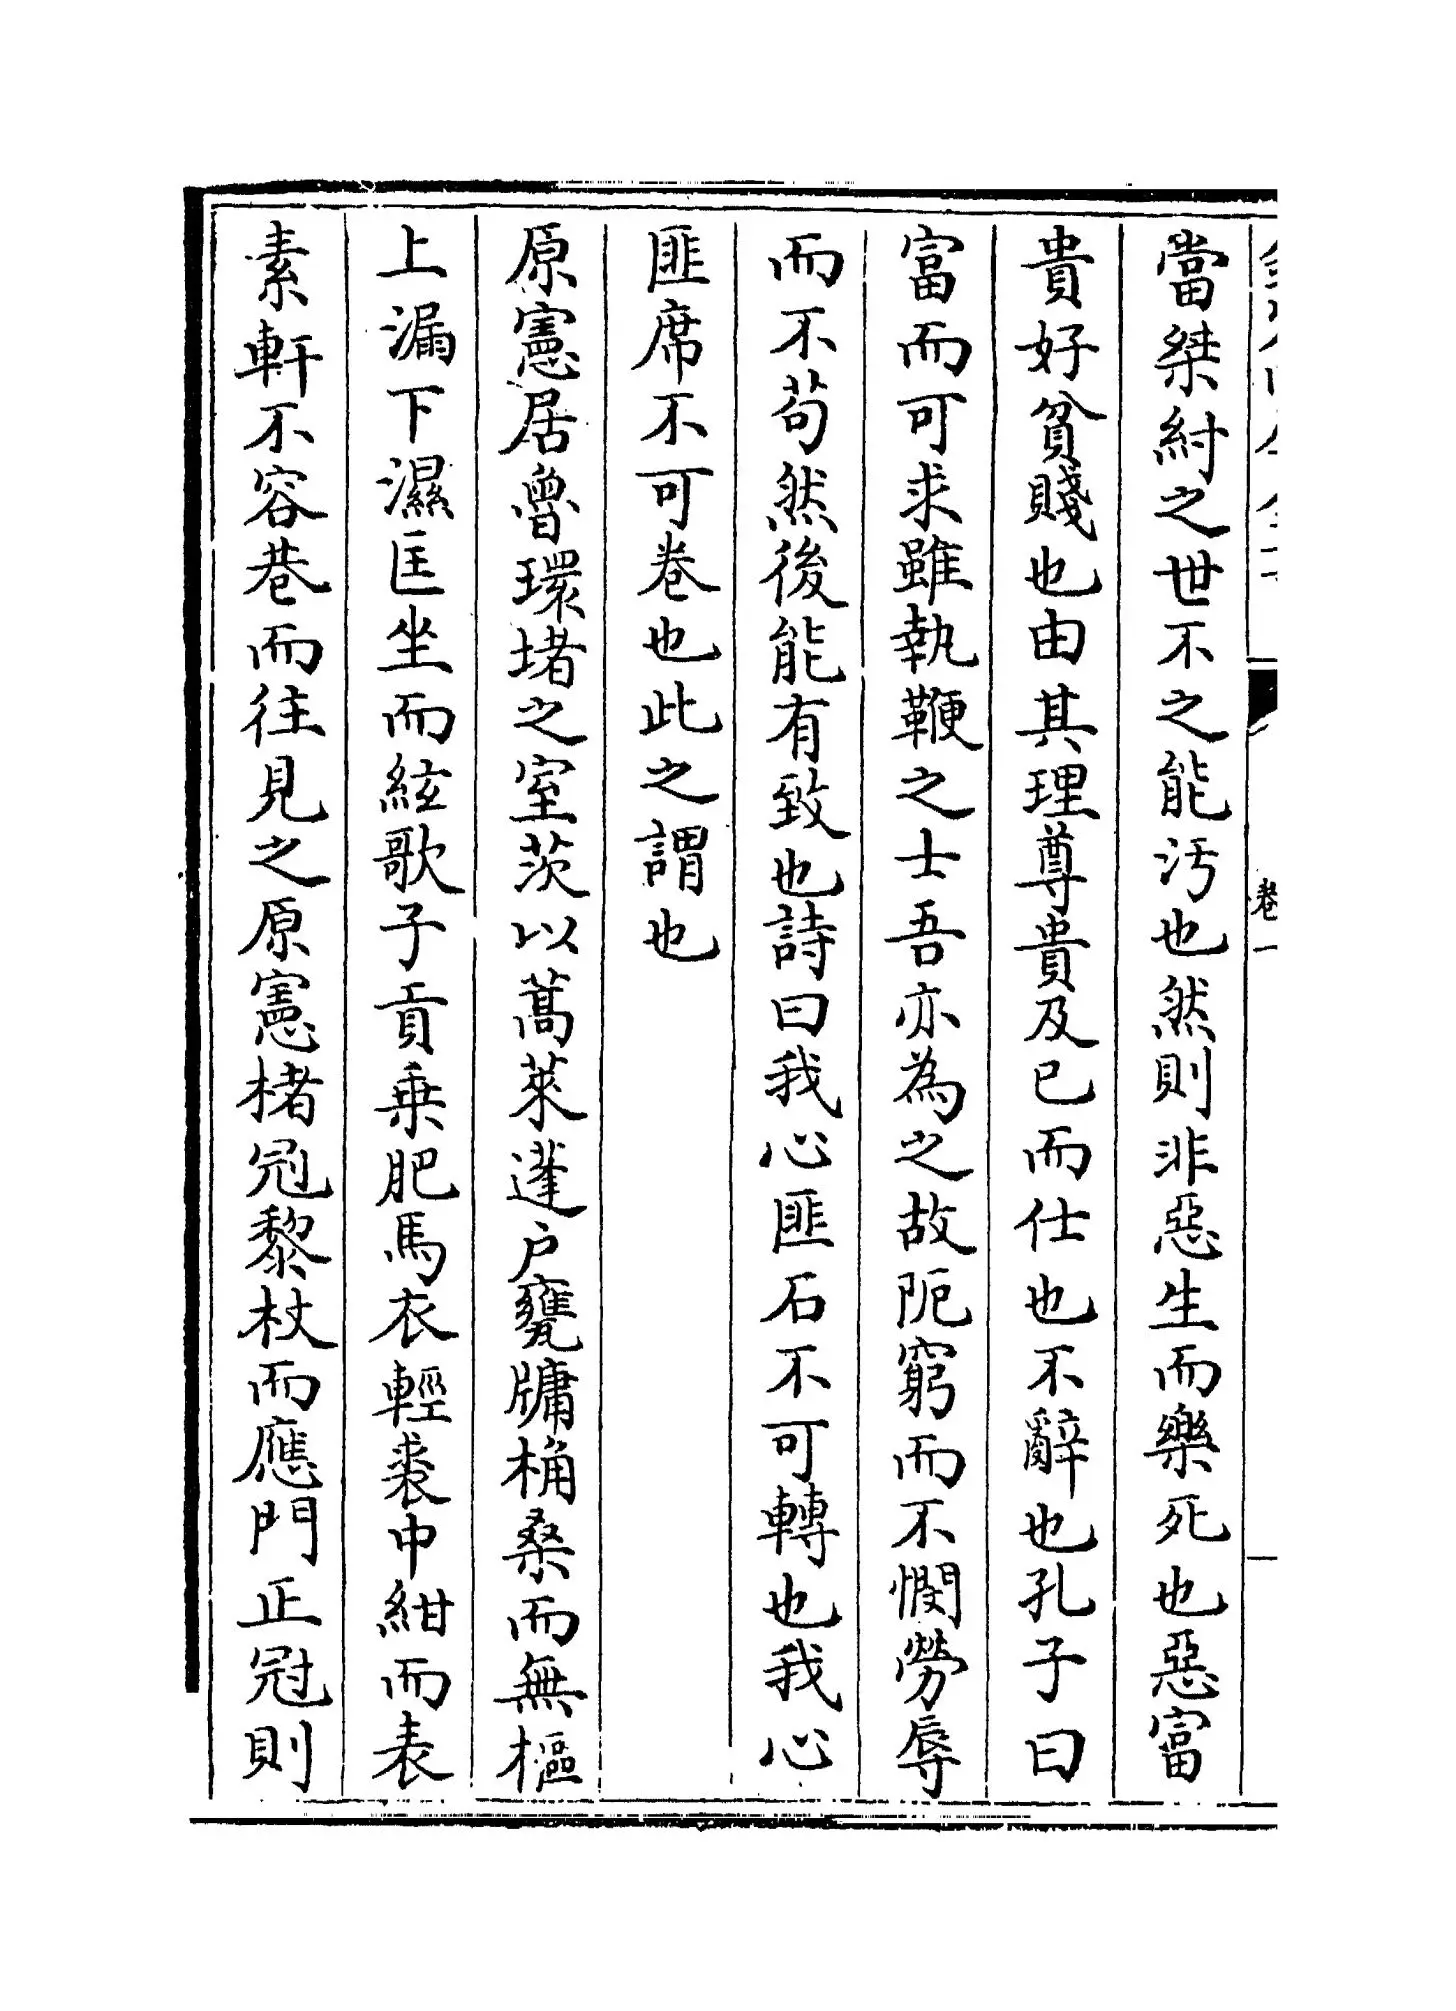 卷一
當桀紂之世不之能汚也然則非惡生而樂死也惡富
貴好貧賤也由其理尊貴及已而仕也不辭也孔子曰
富而可求雖執鞭之士吾亦為之故阨窮而不憫勞辱
而不苟然後能有致也詩曰我心匪石不可轉也我心
匪席不可卷也此之謂也
原憲居魯環堵之室茨以蒿萊蓬户甕牖桷桑而無樞
上漏下濕匡坐而絃歌子貢乗肥馬衣輕裘中紺而表
素軒不容巷而往見之原憲楮冠黎杖而應門正冠則